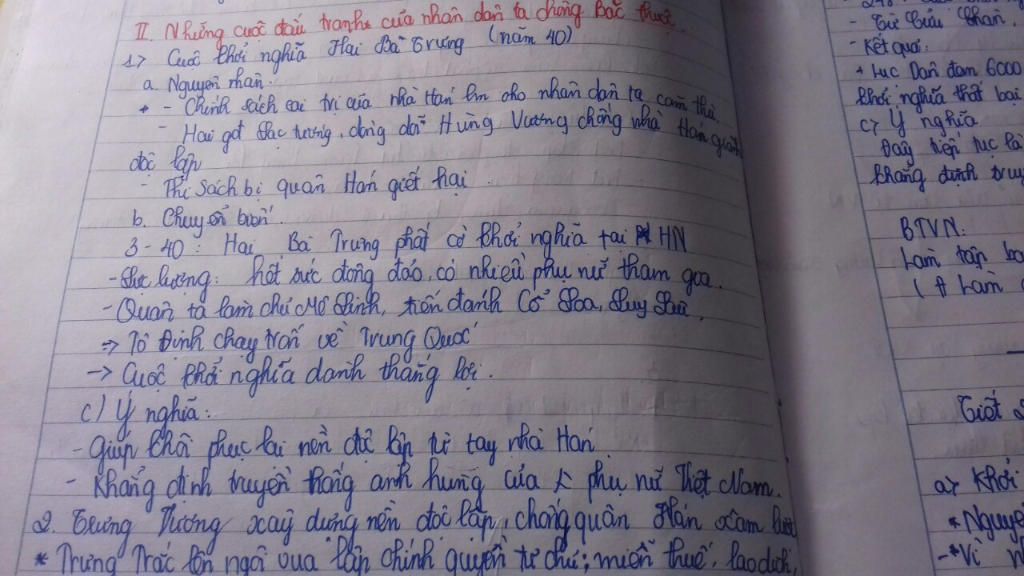 II. Những cuộc đấu tranh của nhân dân ta chống Bắc thuộc.
1.> Cuộc khởi nghĩa Hai Bà Trưng (năm 40)
a. Nguyên nhân:
+ - Chính sách cai trị của nhà Hán làm cho nhân dân ta căm thù.
- Hai gđ Lạc tướng, dòng dõi Hùng Vương chống nhà Hán giành
độc lập
- Thi Sách bị quân Hán giết hại.
b. Chuyển biến.
3 - 40: Hai Bà Trưng phất cờ khởi nghĩa tại HN
- Lực lượng: hết sức đông đảo, có nhiều phụ nữ tham gia.
- Quân ta làm chủ Mê Linh, tiến đánh Cổ Loa, Luy Lâu.
=> Tô Định chạy trốn về Trung Quốc
-> Cuộc khởi nghĩa dành thắng lợi.
c) Ý nghĩa:
- Giúp khôi phục lại nền độc lập từ tay nhà Hán
- Khẳng định truyền thống anh hùng của phụ nữ Việt Nam.
2. Trưng Vương xây dựng nền độc lập, chống quân Hán xâm lược
* Trưng Trắc lên ngôi vua lập chính quyền tự chủ; miễn thuế, lao dịch,
- Từ Cửu Chân,
- Kết quả:
+ Lục Dận đem 6000
khởi nghĩa thất bại
c> Ý nghĩa
Đây tiếp tục là
khẳng định truy
BTVN:
Làm tập
( Làm
Tiết
a> Khởi
* Nguyê
- *Vì